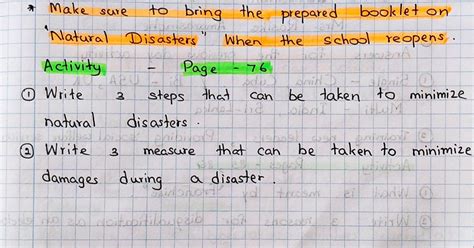 * Make sure to bring the prepared booklet on
"Natural Disasters" When the school reopens.
Activity - Page - 76
① Write 3 steps that can be taken to minimize
natural disasters.
② Write 3 measure that can be taken to minimize
damages during a disaster.